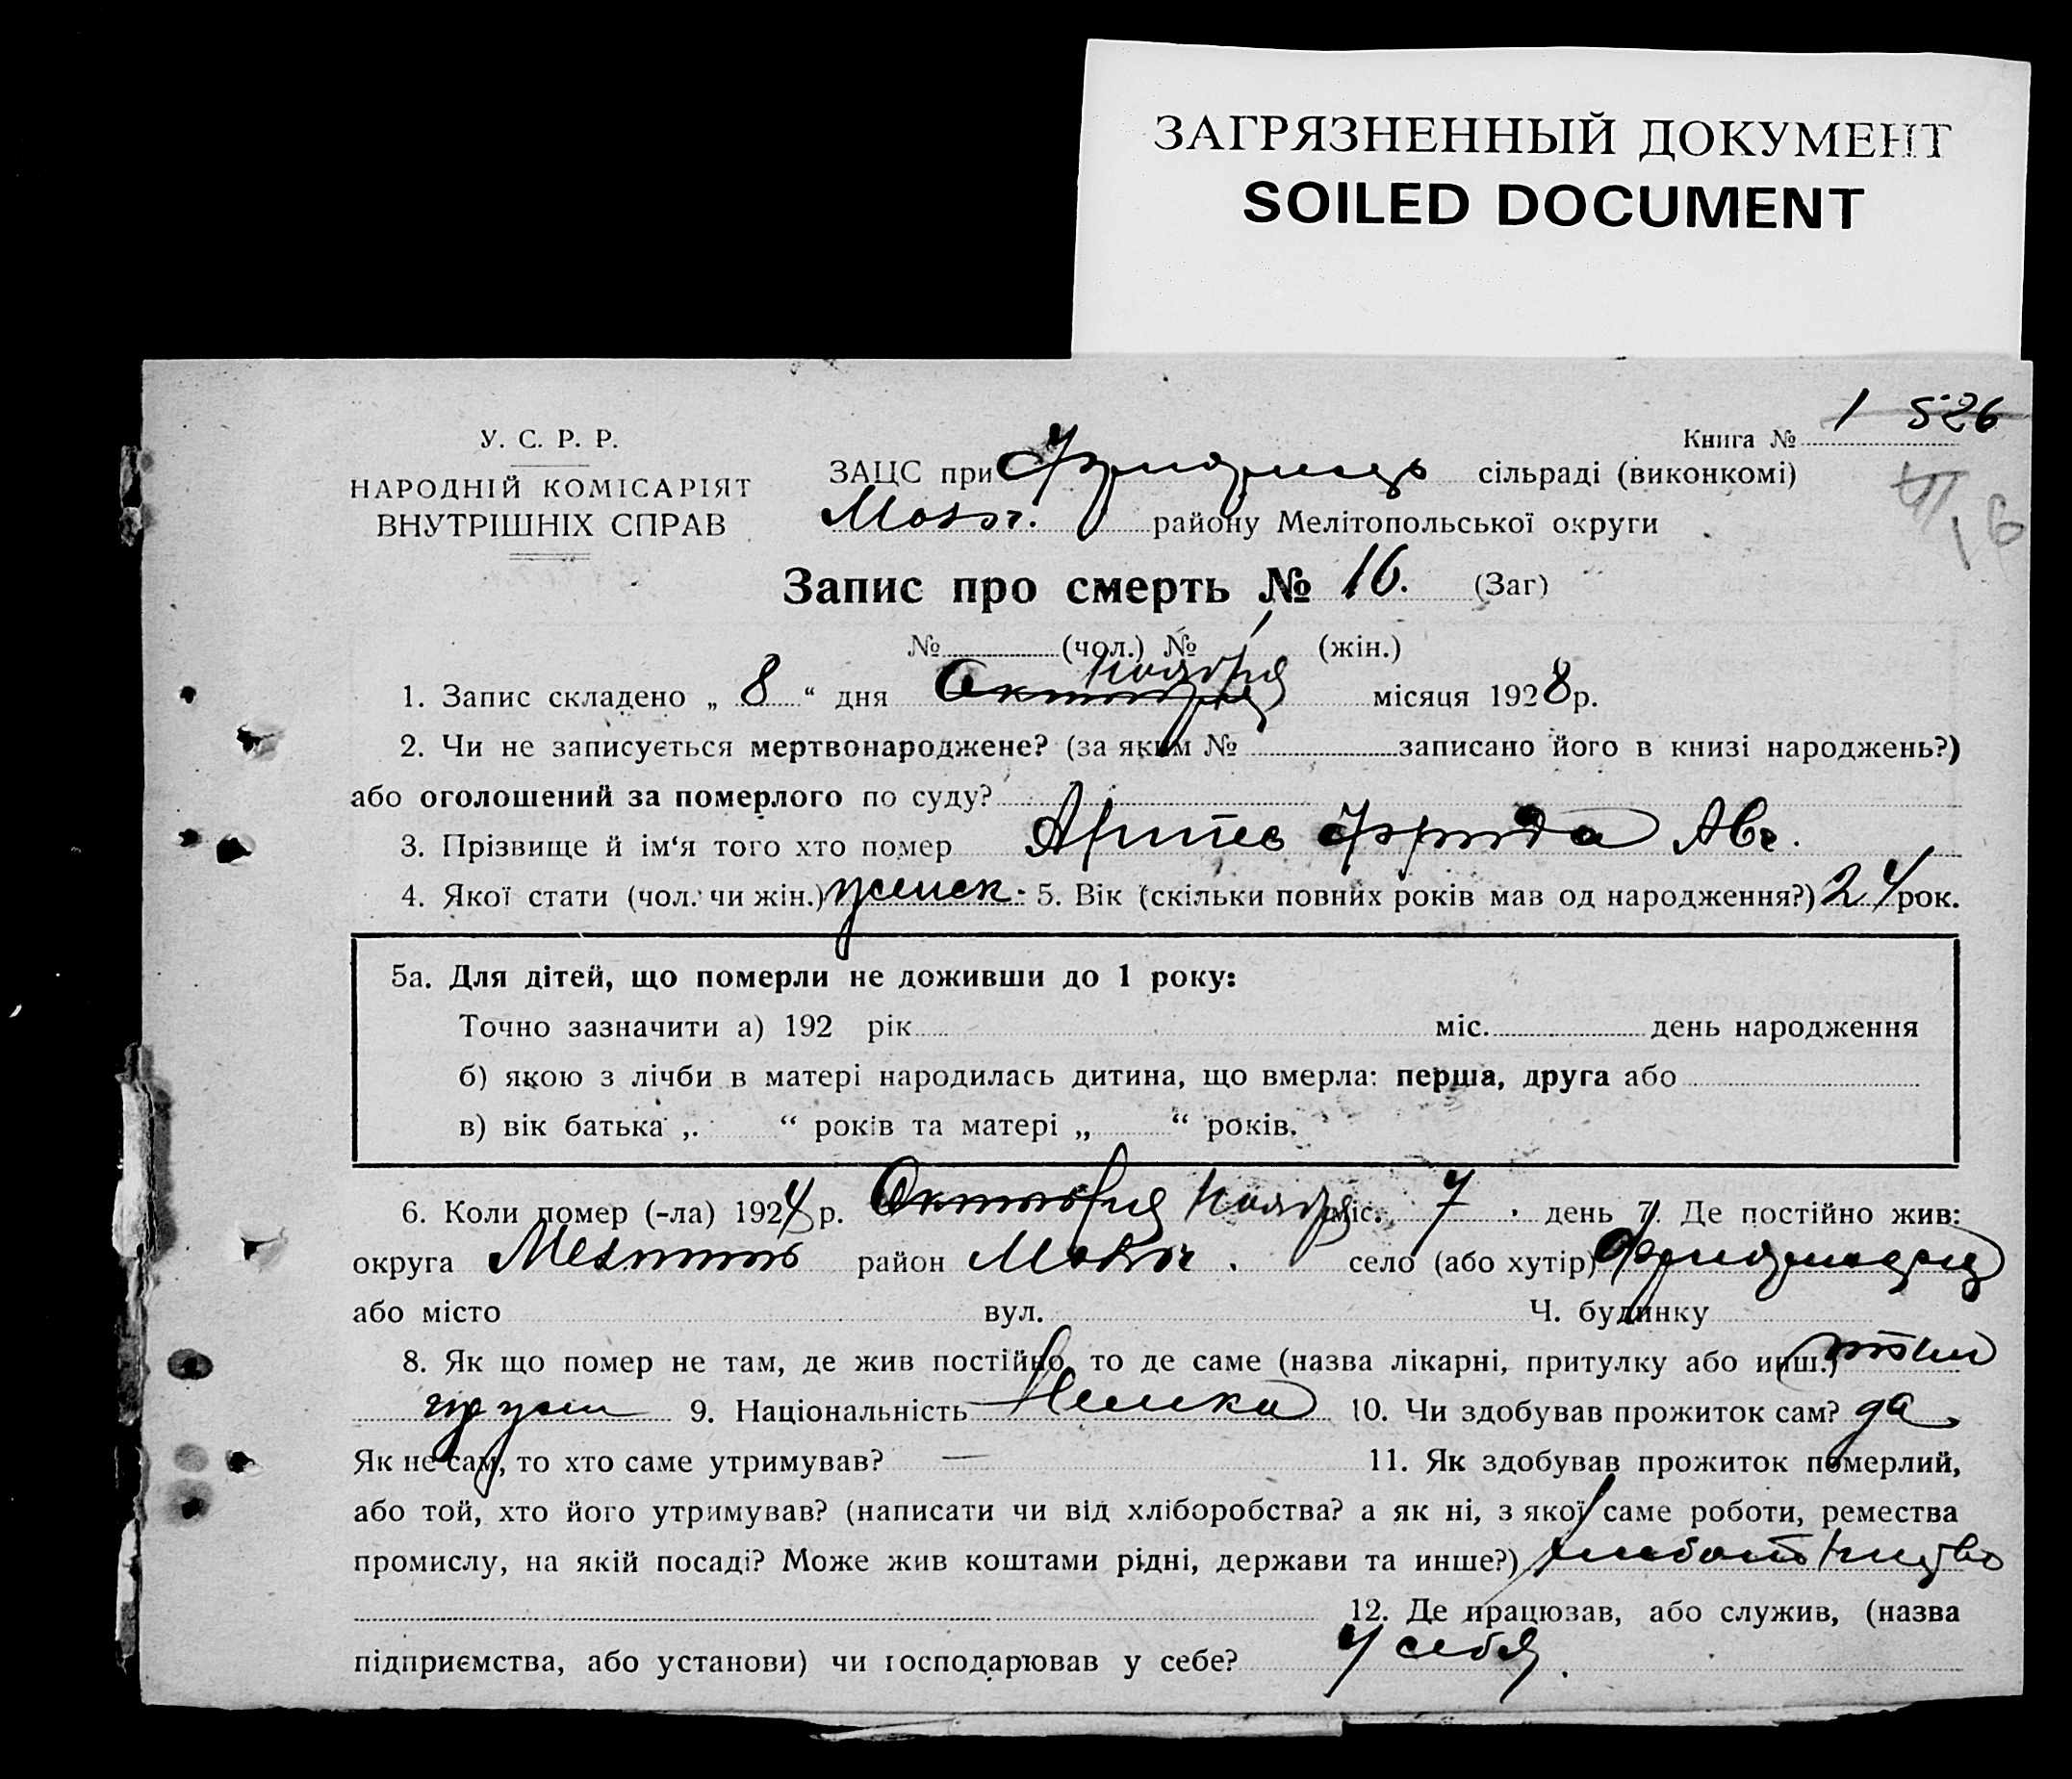 ЗАГРЯЗНЕННЫЙ ДОКУМЕНТ
SOILED DOCUMENT
У. С. Р. Р.
НАРОДНІЙ КОМІСАРІЯТ
ВНУТРІШНІХ СПРАВ
Книга № 1 526
ЗАЦС при сільраді (виконкомі)
району Мелітопольської округи
Запис про смерть № 16. (Заг)
№ (чол.) № (жін.)
ноября
1. Запис складено „ 8 “ дня Октября місяця 1928 р.
2. Чи не записується мертвонароджене? (за яким № записано його в книзі народжень?)
або оголошений за померлого по суду?
3. Прізвище й ім‘я того хто помер Фрида Авг.
4. Якої стати (чол. чи жін.) женск. 5. Вік (скільки повних років мав од народження?) 24 рок.
5а. Для дітей, що померли не доживши до 1 року:
Точно зазначити а) 192 рік міс. день народження
б) якою з лічби в матері народилась дитина, що вмерла: перша, друга або
в) вік батька „ “ років та матері „ “ років.
6. Коли помер (-ла) 192 р. Октября Ноября міс. 7 день 7. Де постійно жив:
округа район село (або хутір)
або місто вул. Ч. будинку
8. Як що помер не там, де жив постійно, то де саме (назва лікарні, притулку або инш.)
9. Національність Немка 10. Чи здобував прожиток сам? да
Як не сам, то хто саме утримував? — 11. Як здобував прожиток померлий,
або той, хто його утримував? (написати чи від хліборобства? а як ні, з якої саме роботи, ремества
промислу, на якій посаді? Може жив коштами рідні, держави та инше?)
12. Де працював, або служив, (назва
підприємства, або установи) чи господарював у себе? У себя.